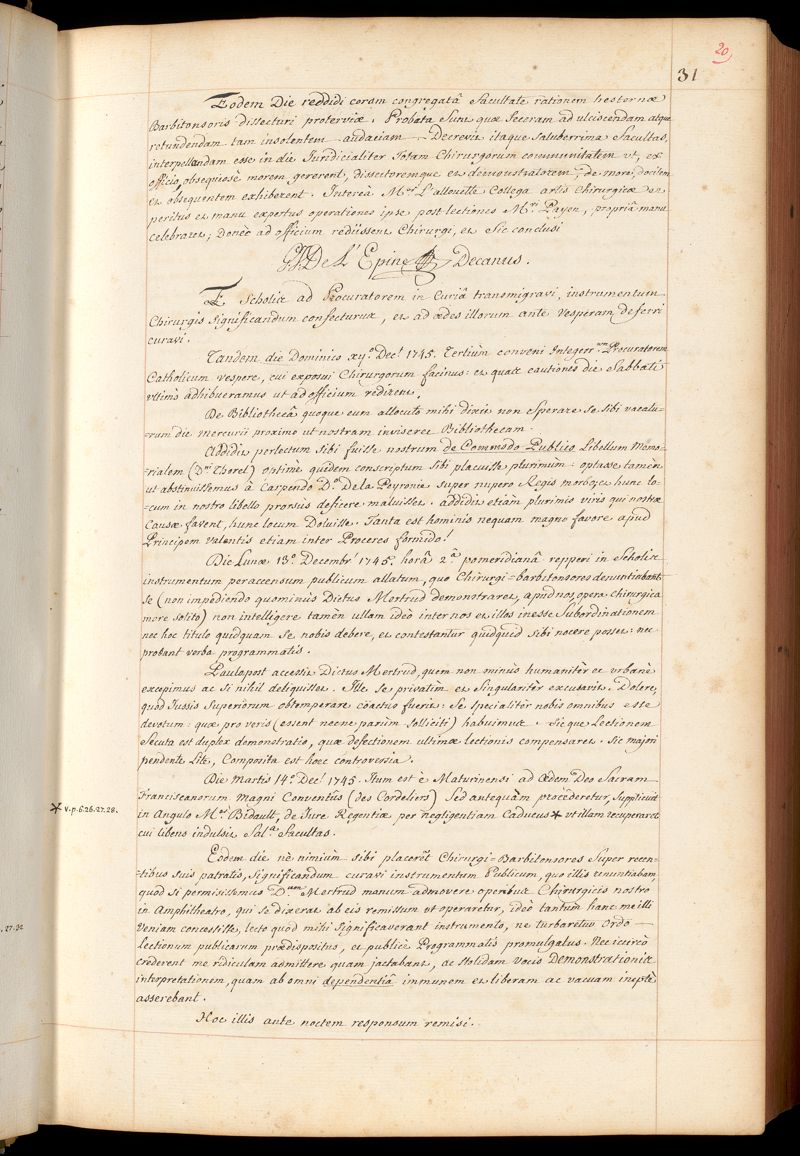 20
31
Eodem Die reddidi coram congregatâ Facultate rationem hesternæ
Barbitonsoris dissecturi proterviæ. Probata Sunt quæ feceram ad ulciscendam atque
retundendam tam insolentem audaciam. Decrevit itaque Saluberrima Facultas,
interpellandam esse in die Juridicialiter Totam Chirurgorum communitatem ut, ex
officio, obsequiosè morem gererent, dissectoremque et demonstratorem, de more, docilem
et obsequentem exhiberent. Intereà Mr. L'allouette Collega artis Chirurgicæ
peritus et manu expertus operationes ipse post lectiones Mri Payen, propriâ manu
celebraret; Donec ad officium rediissent Chirurgi, et Sic conclusi
De L'Epine Decanus.
E Scholis ad Procuratorem in Curiâ transmigravi, instrumentum
Chirurgis significandum confecturus, et ad ædes illorum ante Vesperam deferri
curavi.
Tandem die Dominico xijo. Decs. 1745. Tertiùm conveni Integerrum. Procuratorem
Catholicum vespere, cui exposui Chirurgorum facinus: et quas cautiones die Sabbati
ultimò adhibueramus ut ad officium redirent.
De Bibliothecâ quoque eum allocuto mihi dixit non Sperare se sibi vacatu-
-rum die mercurii proximo ut nostram inviseret Bibliothecam.
Addidit perlectum sibi fuisse nostrum de Commodo Publico Libellum Memo-
-rialem (Dni. Thorel) optimè quidem conscriptum sibi placuisse plurimum: optasse tamen
ut abstinuissemus à Carpendo Do. De la Peyronie super nupero Regis morbo, et hunc lo-
-cum in nostro libello prorsùs deficere maluisset. addidit etiàm plurimis viris qui nostræ
Causæ favent, hunc locum Doluisse. Tanta est hominis nequam magno favore apud
Principem valentis etiam inter Proceres formido!
Die Lunæ 13o. Decembrs. 1745. horâ 2a. pomeridianâ repperi in Scholis
instrumentum per accensum publicum allatum, quo Chirurgi-barbitonsores denuntiabant
Se (non impediendo quominùs Dictus Mertrud demonstraret, apud nos, opera chirurgica
more solito) non intelligere tamèn ullam ideò inter nos et illos inesse Subordinationem
nec hoc titulo quidquam Se nobis debere, et contestantur quidquid sibi nocere posset: nec
probant verba programmatis.
Paulo post accessit Dictus Mertrud, quem non minùs humanitèr et urbanè
excepimus ac si nihil deliquisset. Ille se privatim et Singularitèr excusavit. Dolere,
quod Jussis Superiorum obtemperare coactus fuerit: Se specialitèr nobis omnibus esse
devotum: quæ pro veris (essent necne parùm solliciti) habuimus. Sicque Lectionem
Secuta est duplex demonstratio, quæ defectionem ultimæ lectionis compensaret. Sic majori
pendente Lite, Composita est hæc controversia.
Die Martis 14o. Decs. 1745. Itum est è Maturinensi ad Ædem Deo Sacram
Franciscanorum Magni Conventûs (des Cordeliers) Sed antequàm procederetur, Supplicuit
in Angulo Mr. Bidault, de Jure Regentiæ per negligentiam Caducus * ut illam recuperaret
* v. p. s. 26. 27. 28.
cui libens indulsit Sala. Facultas.
Eodem die nè nimiùm sibi placerêt Chirurgi-Barbitonsores Super recen-
-tibus suis patratis, significandum curavi instrumentum Publicum, quo illis renuntiabam,
quod si permisissemus Dnum. Mertrud manum admovere operibus Chirurgicis nostro
in Amphitheatro, qui se dixerat ab eis remissum ut operaretur, ideò tantum hanc me illi
veniam concessisse, lecto quod mihi significaverant instrumento, ne turbaretur Ordo
Lectionum publicarum prædispositus, et publicè Programmatis promulgatus. Nec iccircò
crederent me ridiculam admittere quam jactabant, ac Stolidam vocis Demonstrationis
interpretationem, quam ab omni dependentiâ immunem et liberam ac vacuam ineptè
asserebant.
Hoc illis ante noctem responsum remisi.
. 27. 32